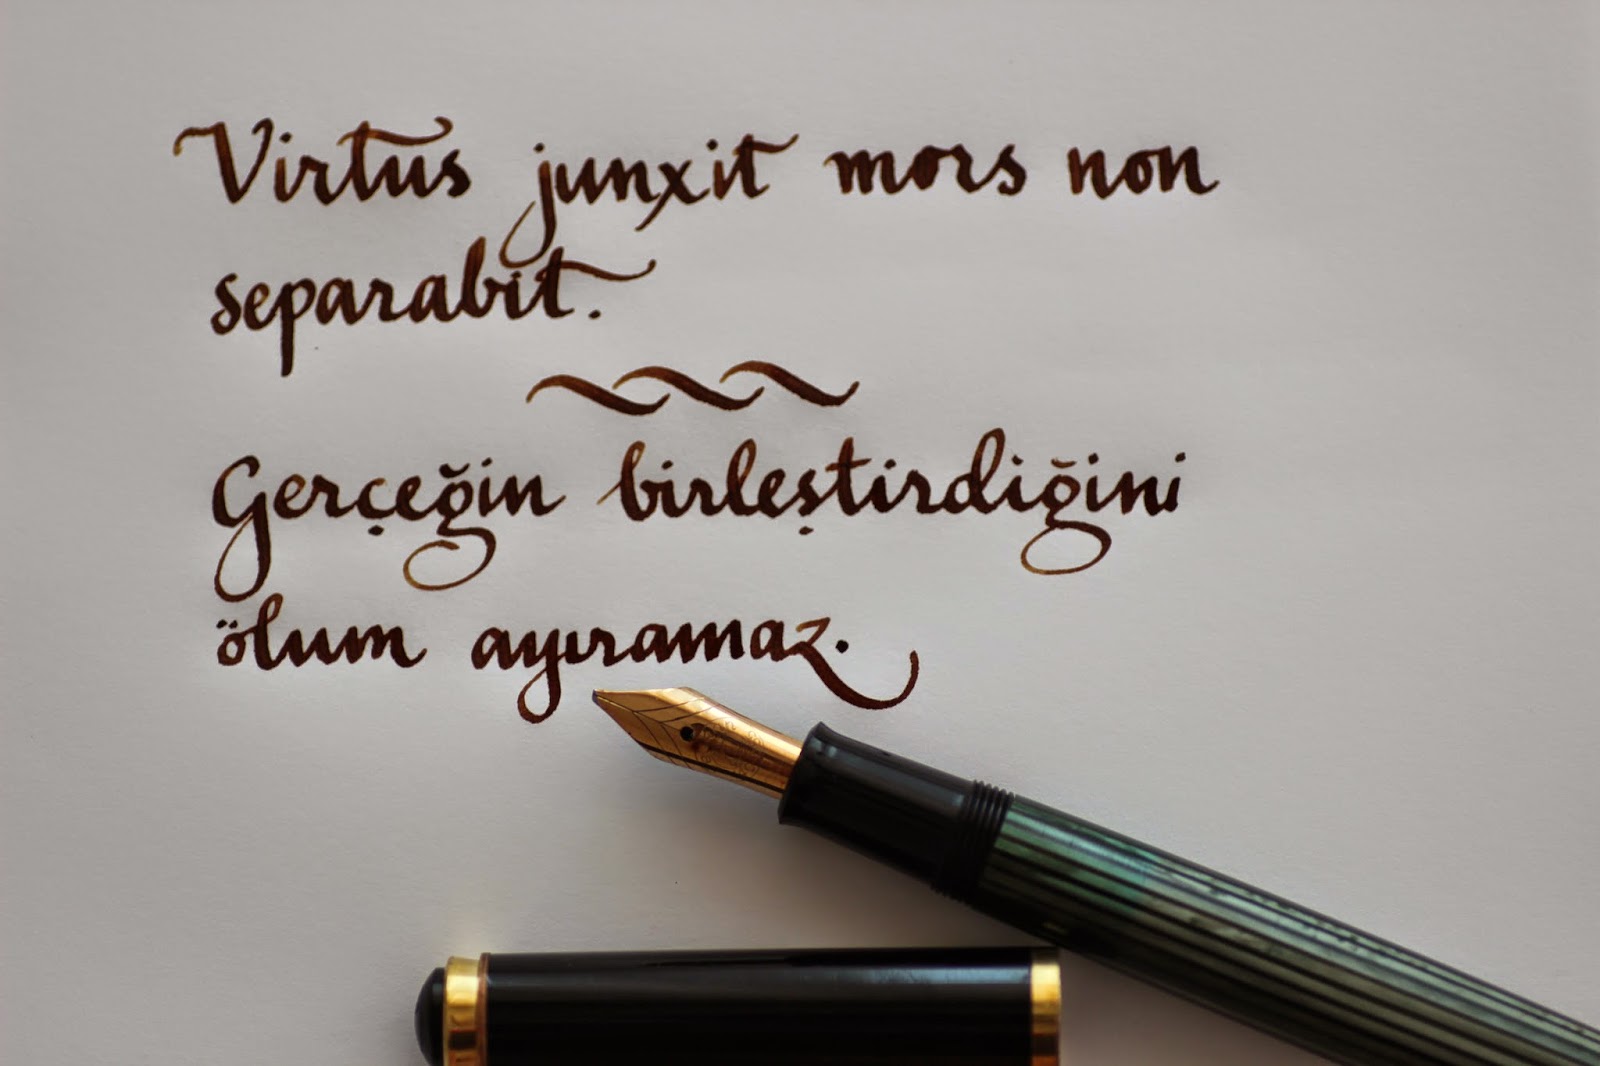 Virtus junxit mors non
separabit.
Gerçeğin birleştirdiğini
ölum ayıramaz.